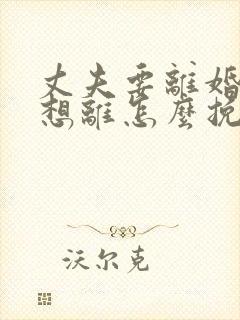 丈夫要離婚
想離怎麼挽
沃尔克